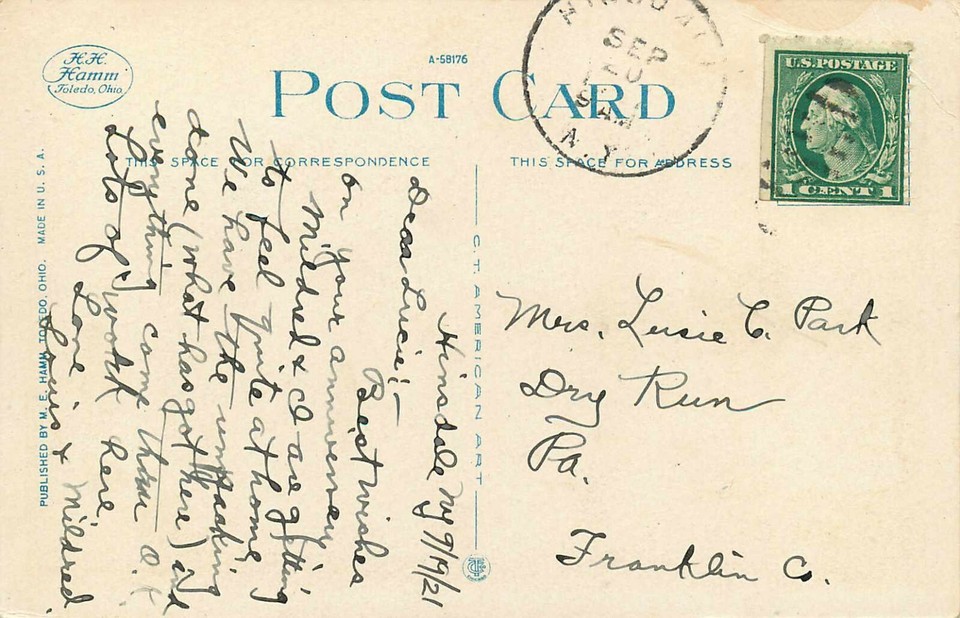 H.H.
Hamm
Toledo, Ohio.
A-58176
POST CARD
THIS SPACE FOR CORRESPONDENCE
THIS SPACE FOR ADDRESS
SEP
A.M.
N.Y.
U.S. POSTAGE
1 CENT 1
Hinsdale Ny 9/19/21
Dear Lucie:—
Best wishes
on your anniversary
Mildred & I are getting
to feel quite at home
We have the unpacking
done (what has got here) and
everything came thru O.K
Lots of work here.
Lots of Love
Louis & Mildred.
Mrs. Lusie C. Park
Dry Run
Pa.
Franklin Co.
C.T. AMERICAN ART
PUBLISHED BY M. E. HAMM, TOLEDO, OHIO. MADE IN U. S. A.